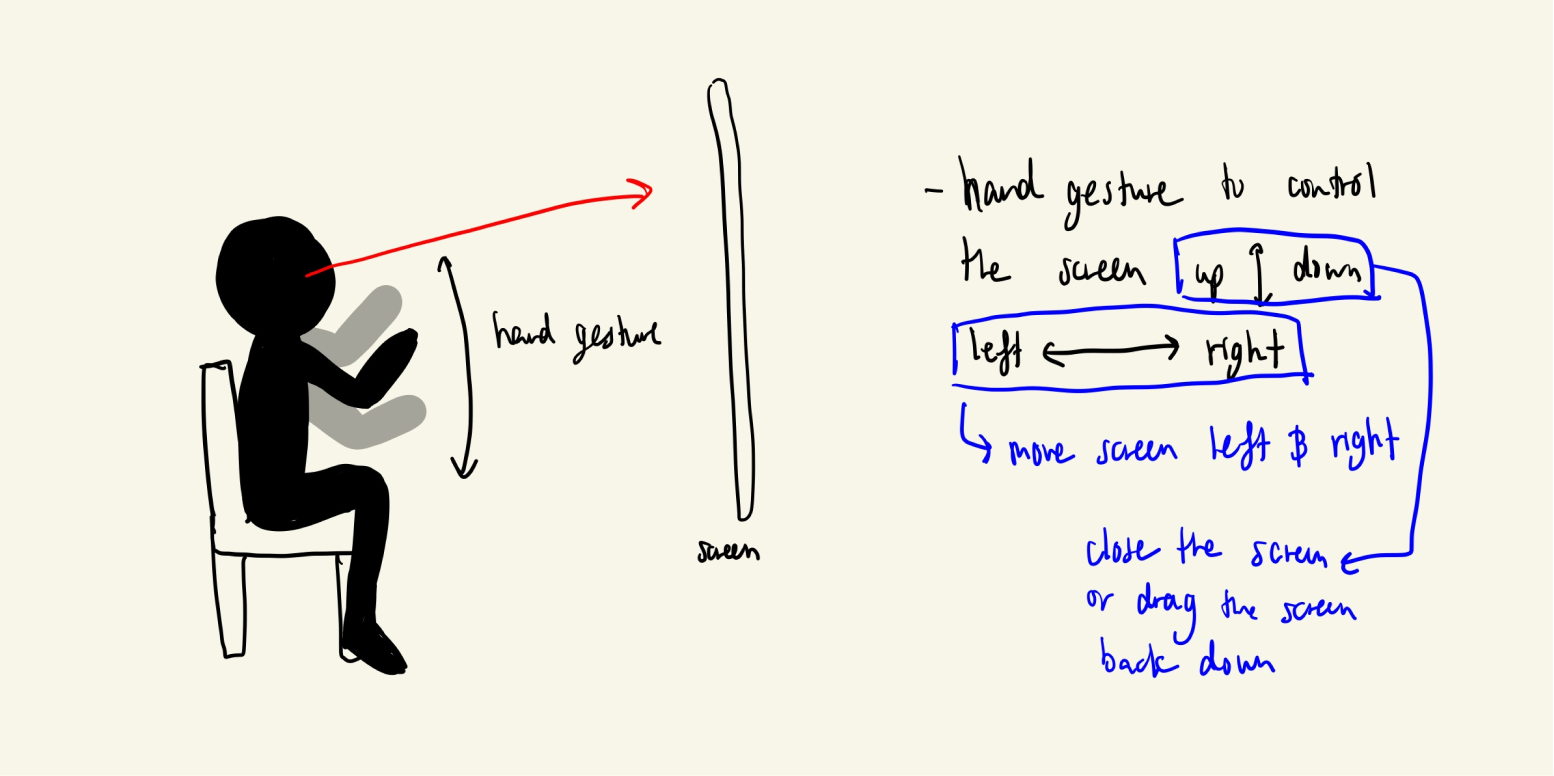 hand gesture
screen
- hand gesture to control
the screen up ↕ down
left ↔ right
↳ move screen left & right
close the screen
or drag the screen
back down